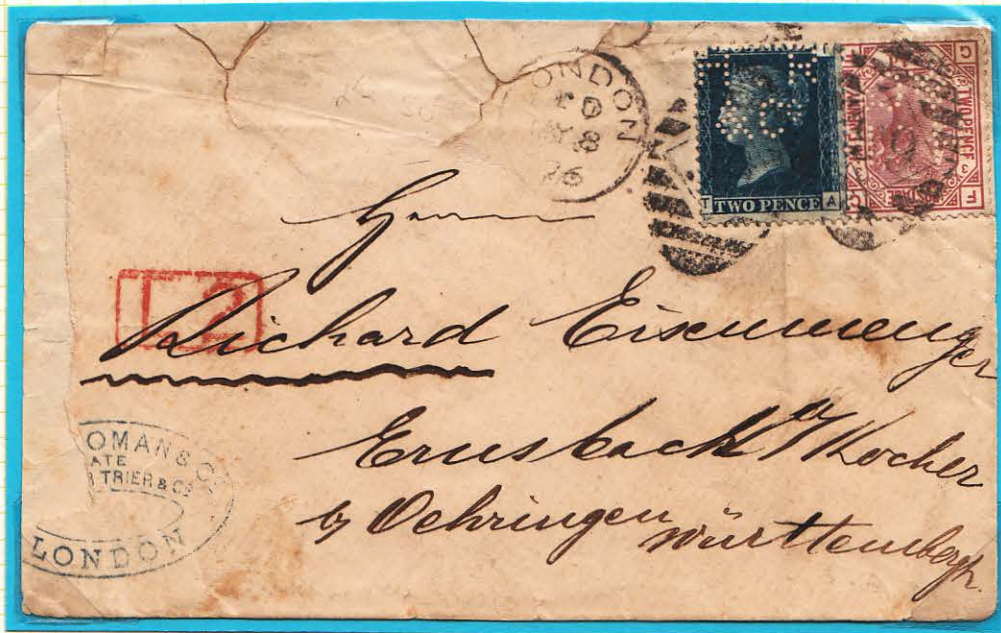 LONDON
8
76
TWO PENCE
A
TWO PENCE
Herrn
L2
Richard Eisenmenger
Ernsbach a/Kocher
by Oehringen Württemberg
OMAN & Co
ATE
TRIER & Co
LONDON